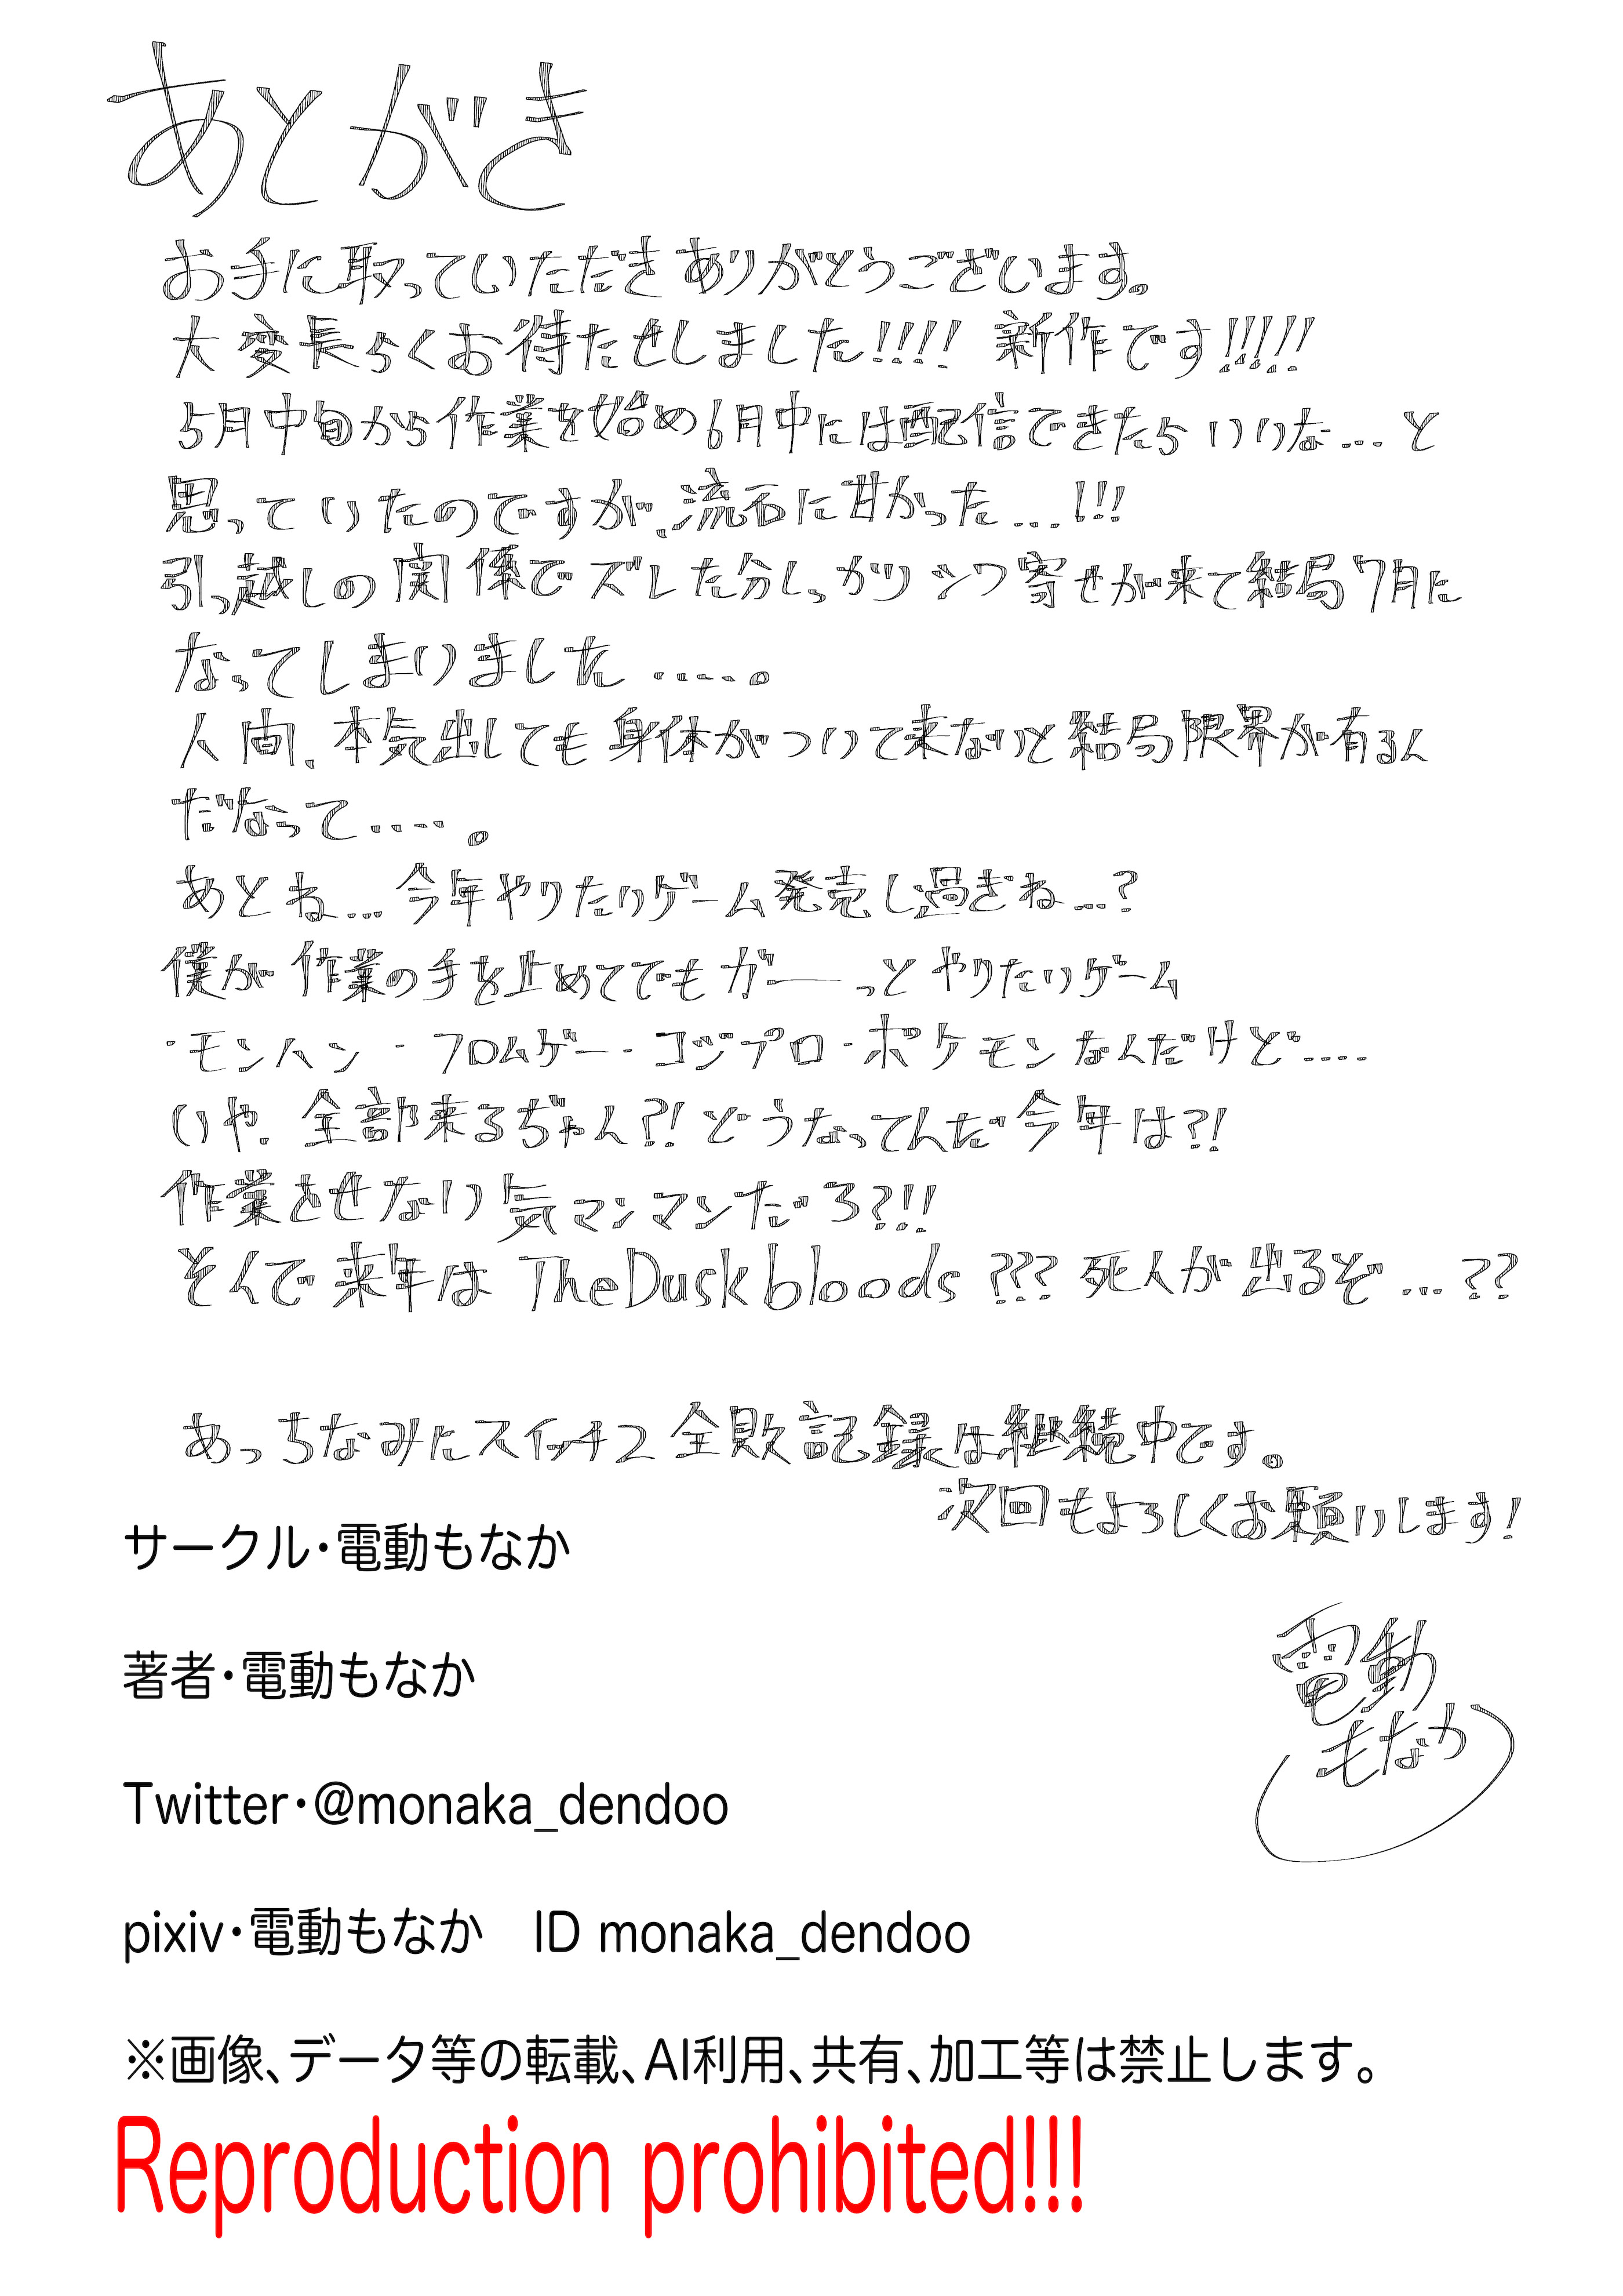 あとがき
お手に取っていただきありがとうございます。
大変長らくお待たせしました!!!! 新作です!!!!!
5月中旬から作業を始め6月中には配信できたらいいな...と
思っていたのですが、流石に甘かった...!!!
引っ越しの関係でズレた分しっかりシワ寄せが来て結局7月に
なってしまいました.....。
人間、本気出しても身体がついて来ないと結局限界が有るん
だなって....。
あとね...今年やりたいゲーム発売し過ぎね...?
僕が作業の手を止めてでもガーーっとやりたいゲーム
・モンハン・フロムゲー・コジプロ・ポケモンなんだけど....
いや、全部来るぢゃん?!どうなってんだ今年は?!
作業させない気マンマンだろ?!!
そんで来年はTheDuskbloods???死人が出るぞ...??
あっちなみにスイッチ2全敗記録は継続中です。
次回もよろしくお願いします!
サークル・電動もなか
著者・電動もなか
電動
もなか
Twitter・@monaka_dendoo
pixiv・電動もなか　ID monaka_dendoo
※画像、データ等の転載、AI利用、共有、加工等は禁止します。
Reproduction prohibited!!!